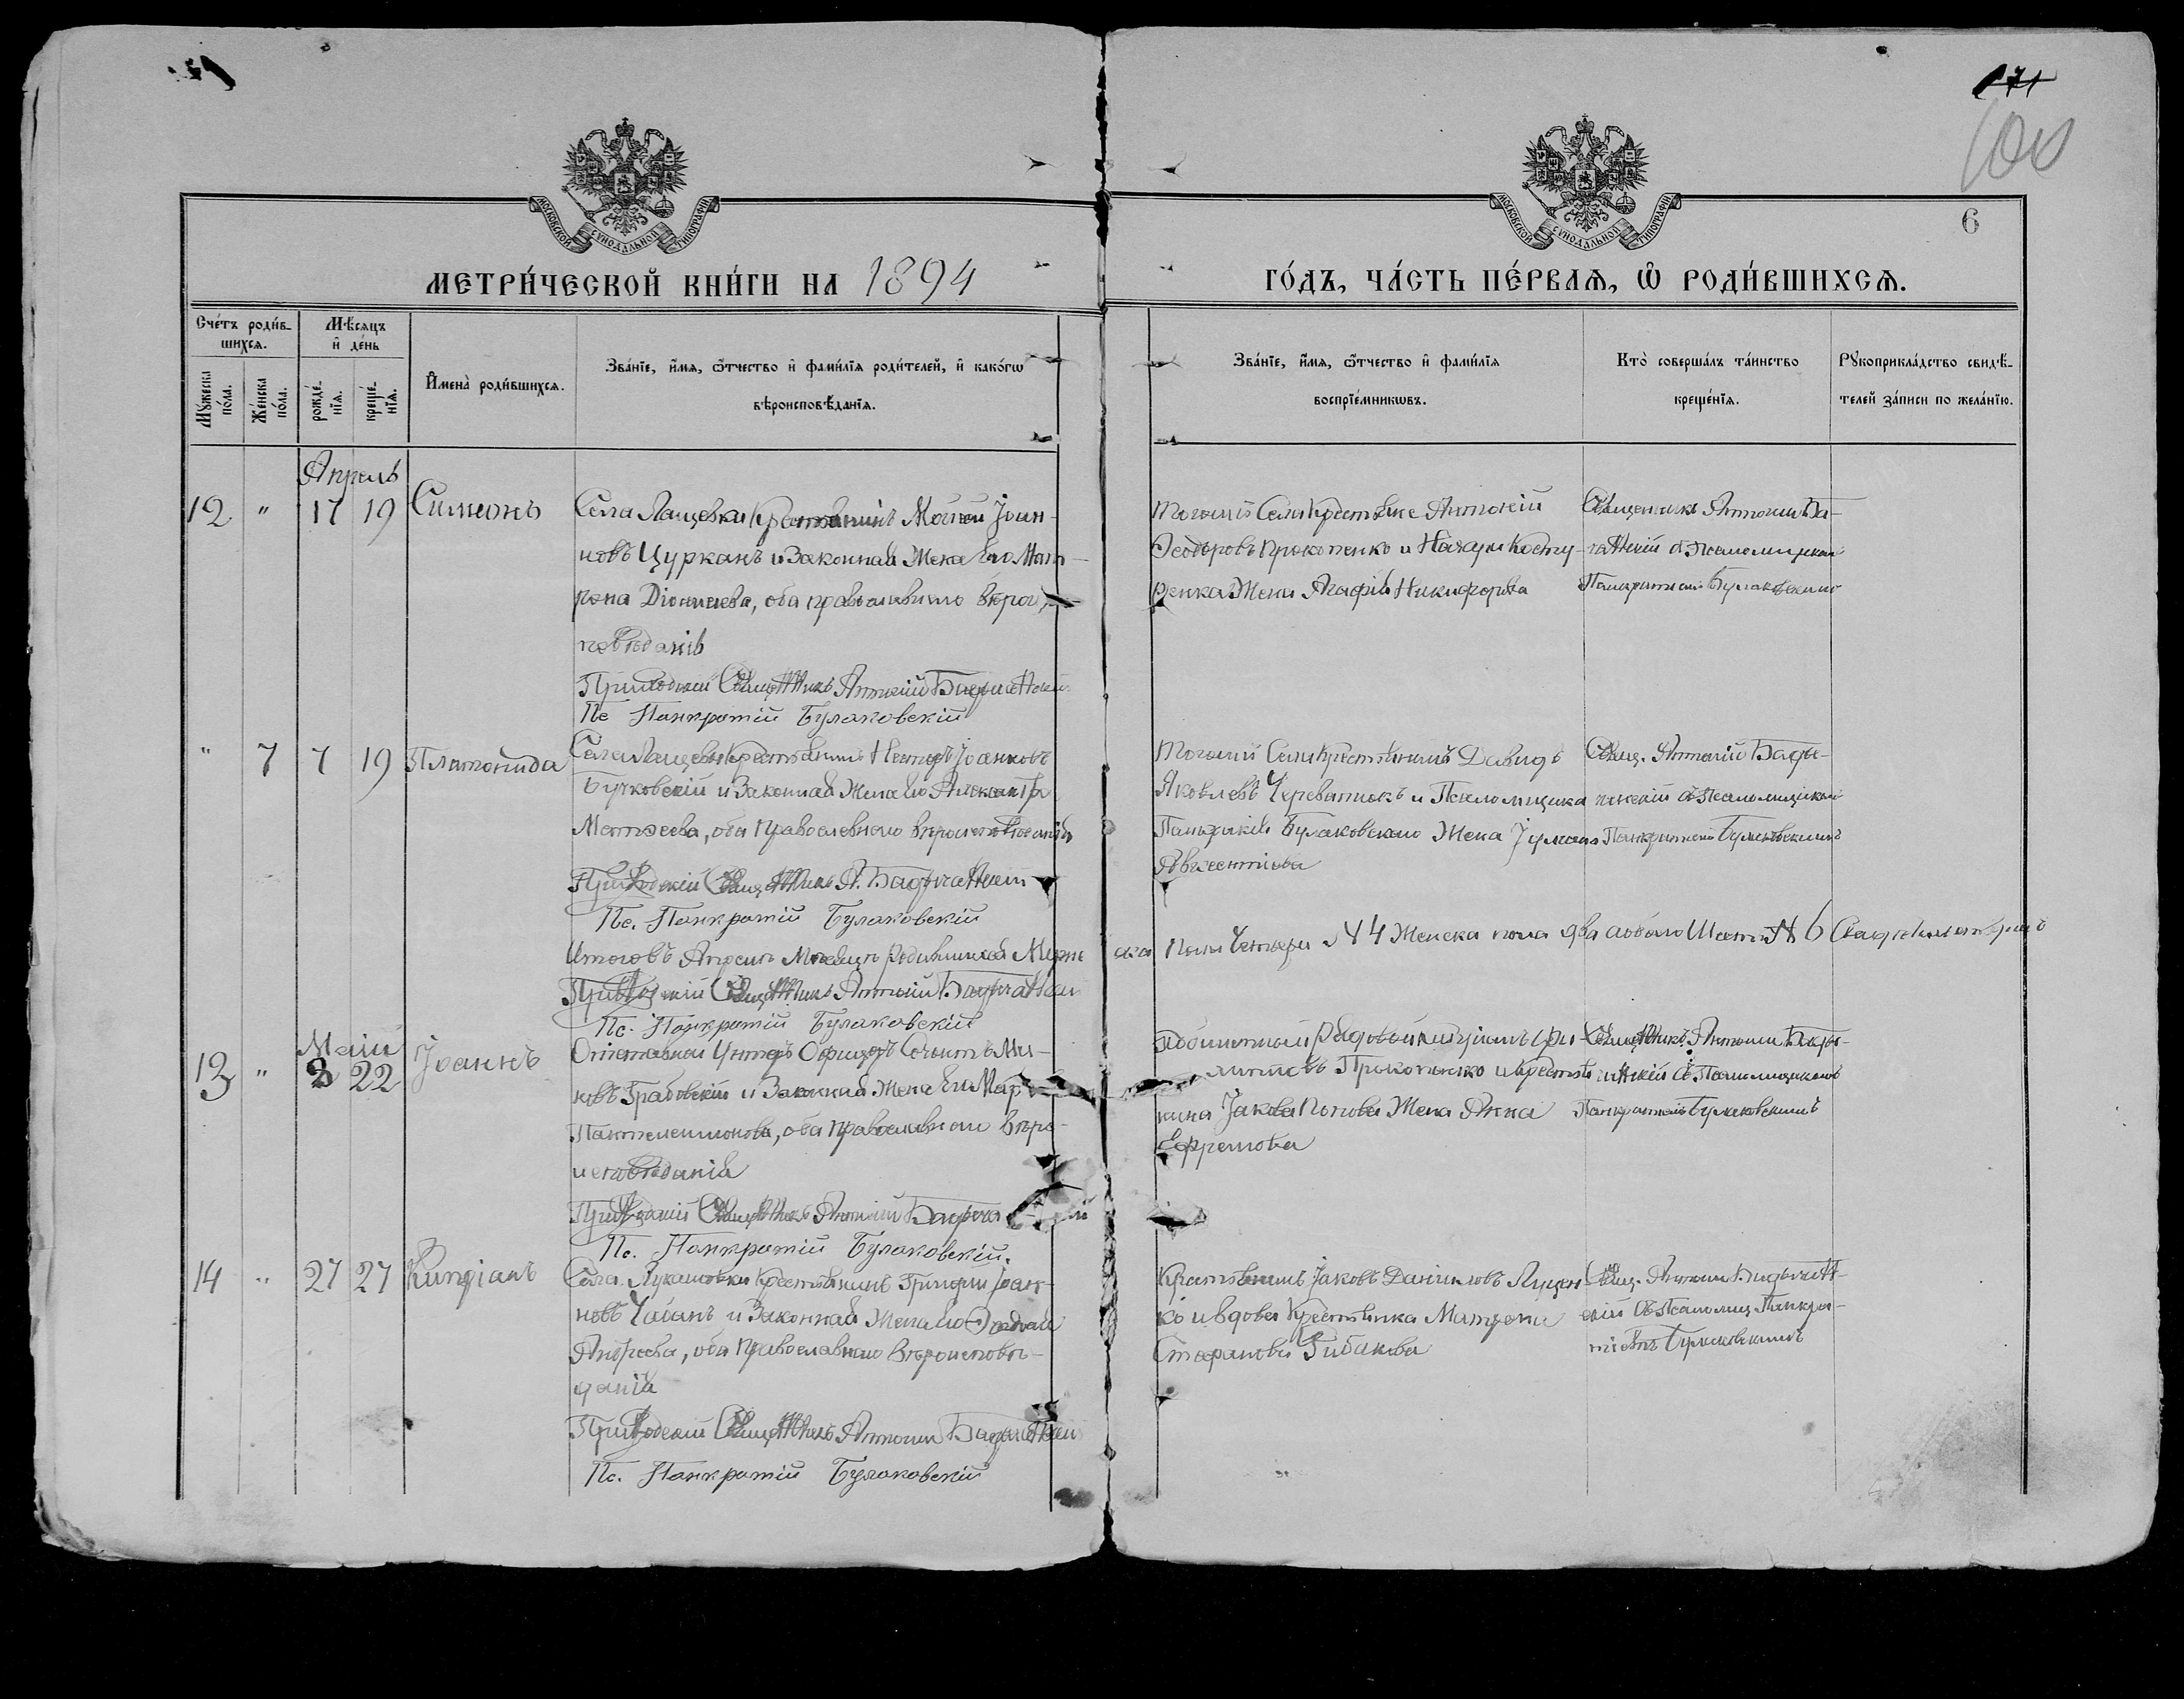 171
100
6
МОСКОВСКОЙ СУНОДАЛЬНОЙ ТИПОГРАФІИ
МОСКОВСКОЙ СУНОДАЛЬНОЙ ТИПОГРАФІИ
МЕТРИ́ЧЕСКОЙ КНИ́ГИ НА 1894
ГО́ДЪ, ЧА́СТЬ ПЕ́РВАѦ, Ѡ҆ РОДИ́ВШИХСѦ.
Сче́тъ роди́в-
шихсѧ.
Мꙋ́жеска по́ла.
Же́нска по́ла.
Мѣ́сѧцъ
и҆ де́нь
рожде́-
нїѧ.
креще́-
нїѧ.
И҆мена̀ роди́вшихсѧ.
Зва́нїе, и҆́мѧ, ѻ҆́тчество и҆ фами́лїѧ роди́телей, и҆ како́гѡ
вѣроисповѣ́данїѧ.
Зва́нїе, и҆́мѧ, ѻ҆́тчество и҆ фами́лїѧ
воспрїе́мникѡвъ.
Кто̀ соверша́лъ та́инство
креще́нїѧ.
Рꙋкоприкла́дство свидѣ́-
телей за́писи по жела́нїю.
Апрель
12 " 17 19 Симеонъ
Села Лащевки Крестьянинъ Моѵсей Іоан-
новъ Цурканъ и Законная Жена Его Мат-
рона Діонисіева, оба православнаго вѣрои
повѣданія
Приходскій Священникъ Антоній
Пс Панкратій Булаковскій
Тогоже Села Крестьяне Антоній
Ѳеодоровъ Прокопенко и Захаріи Косту-
ренка Жена Агафія Никифорова
Священникъ Антоній Ба-
съ Псаломщикомъ
Панкратіемъ Булаковскимъ
" 7 7 19 Платонида
Села Лащевки Крестьянинъ Несторъ Іоанновъ
Бучковскій и Законная Жена Его Александра
Матѳеева, оба Православнаго вѣроисповѣданія
Приходскій Священникъ А.
Пс. Панкратій Булаковскій
Тогоже Села Крестьянинъ Давидъ
Яковлевъ Череватюкъ и Псаломщика
Панкратія Булаковскаго Жена Іуліанія
Авксентіева
Свящ. Антоній
съ Псаломщикомъ
Панкратіемъ Булаковскимъ
Итого въ Апрель Мѣсяцѣ родившихся Муже
ска Пола Четыри № 4 Женска пола два а обоего Шесть № 6
Приходскій Священникъ Антоній
Пс. Панкратій Булаковскій
Маій
13 " 8 22 Іоаннъ
Отставной Унтеръ Офицеръ
новъ Грабовскій и Законная Жена Его Мар
Пантелеимонова, оба Православнаго вѣро-
исповѣданія
Приходскій Священникъ Антоній
Пс. Панкратій Булаковскій.
Прокопенко и Крестья
нина Іакова Попова Жена Анна
Ефремова
Священникъ Антоній
съ Псаломщикомъ
Панкратіемъ Булаковскимъ
14 " 27 27 Кипріанъ
Села Лукашовки Крестьянинъ Григорій Іоан-
новъ Чабанъ и Законная Жена Его
Андреева, оба Православнаго вѣроисповѣ-
данія
Приходскій Священникъ Антоній
Пс. Панкратій Булаковскій
Крестьянинъ Іаковъ Даніиловъ Луцен-
ко и вдова Крестьянка Матрона
Стефанова
Свящ. Антоній
скій съ Псаломщ. Панкра-
тіемъ Булаковскимъ